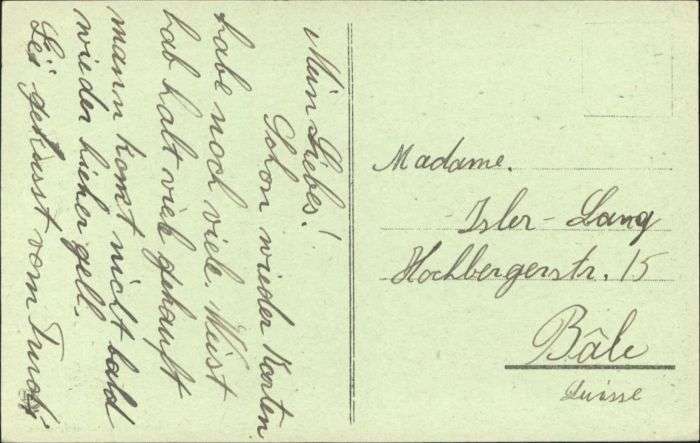 Mein Liebes!
Schon wieder Karten
habe noch viele. Weist
hab halt viel gekauft
mann komt nicht bald
wieder hieher gell.
Sei geküsst vom Trudi
Madame.
Isler-Lang
Hochbergerstr. 15
Bâle
Suisse